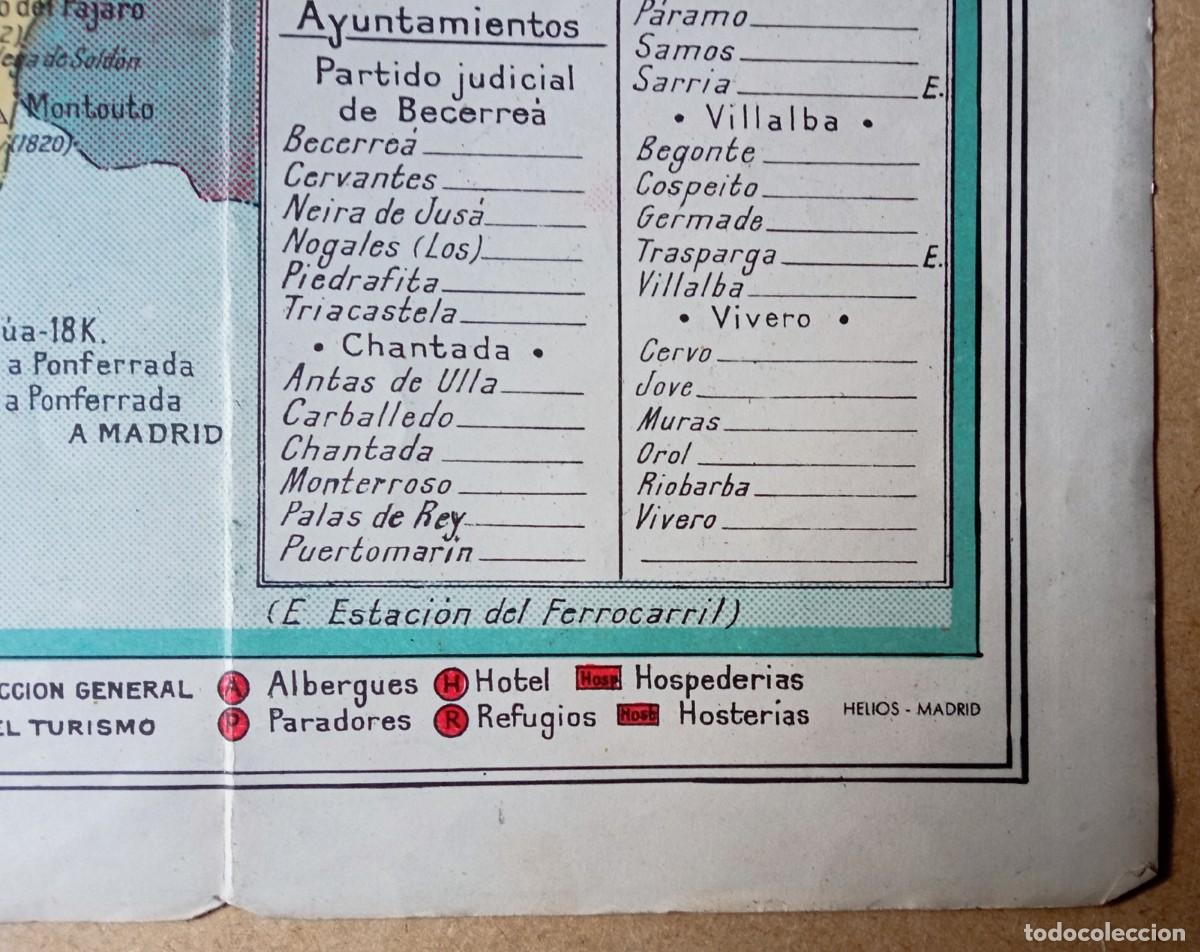 o del Pajaro
2)
ega de Soldón
Montouto
(1820)
úa-18K.
a Ponferrada
a Ponferrada
A MADRID
Ayuntamientos
Partido judicial
de Becerreá
Becerreá
Cervantes
Neira de Jusá
Nogales (Los)
Piedrafita
Triacastela
• Chantada •
Antas de Ulla
Carballedo
Chantada
Monterroso
Palas de Rey
Puertomarín
Páramo
Samos
Sarria E.
• Villalba •
Begonte
Cospeito
Germade
Trasparga E.
Villalba
• Vivero •
Cervo
Jove
Muras
Orol
Riobarba
Vivero
(E. Estación del Ferrocarril)
CCION GENERAL
EL TURISMO
A Albergues H Hotel Hosp Hospederias
P Paradores R Refugios Host Hosterías
HELIOS - MADRID
todocoleccion